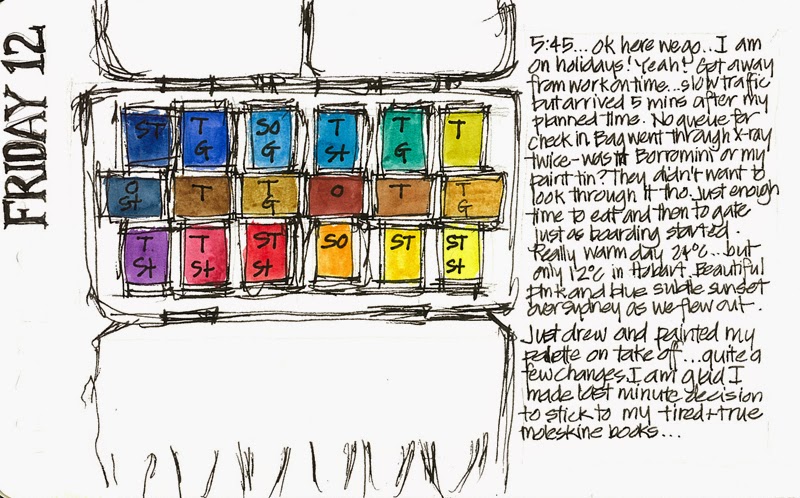 FRIDAY 12
ST
T
G
SO
G
T
St
T
G
T
O
St
T
T
G
O
T
T
G
T
St
T
St
ST
St
SO
ST
ST
St
5:45... ok here we go.. I am
on holidays! Yeah! Got away
from work on time... slow traffic
but arrived 5 mins after my
planned time. No queue for
check in. Bag went through x-ray
twice - was it Borromini or my
paint tin? They didn't want to
look through it tho. Just enough
time to eat and then to gate
just as boarding started.
Really warm day 24°c... but
only 12°c in Hobart. Beautiful
pink and blue subtle sunset
over Sydney as we flew out.
Just drew and painted my
palette on take off... quite a
few changes. I am glad I
made last minute decision
to stick to my tired + true
moleskine books...